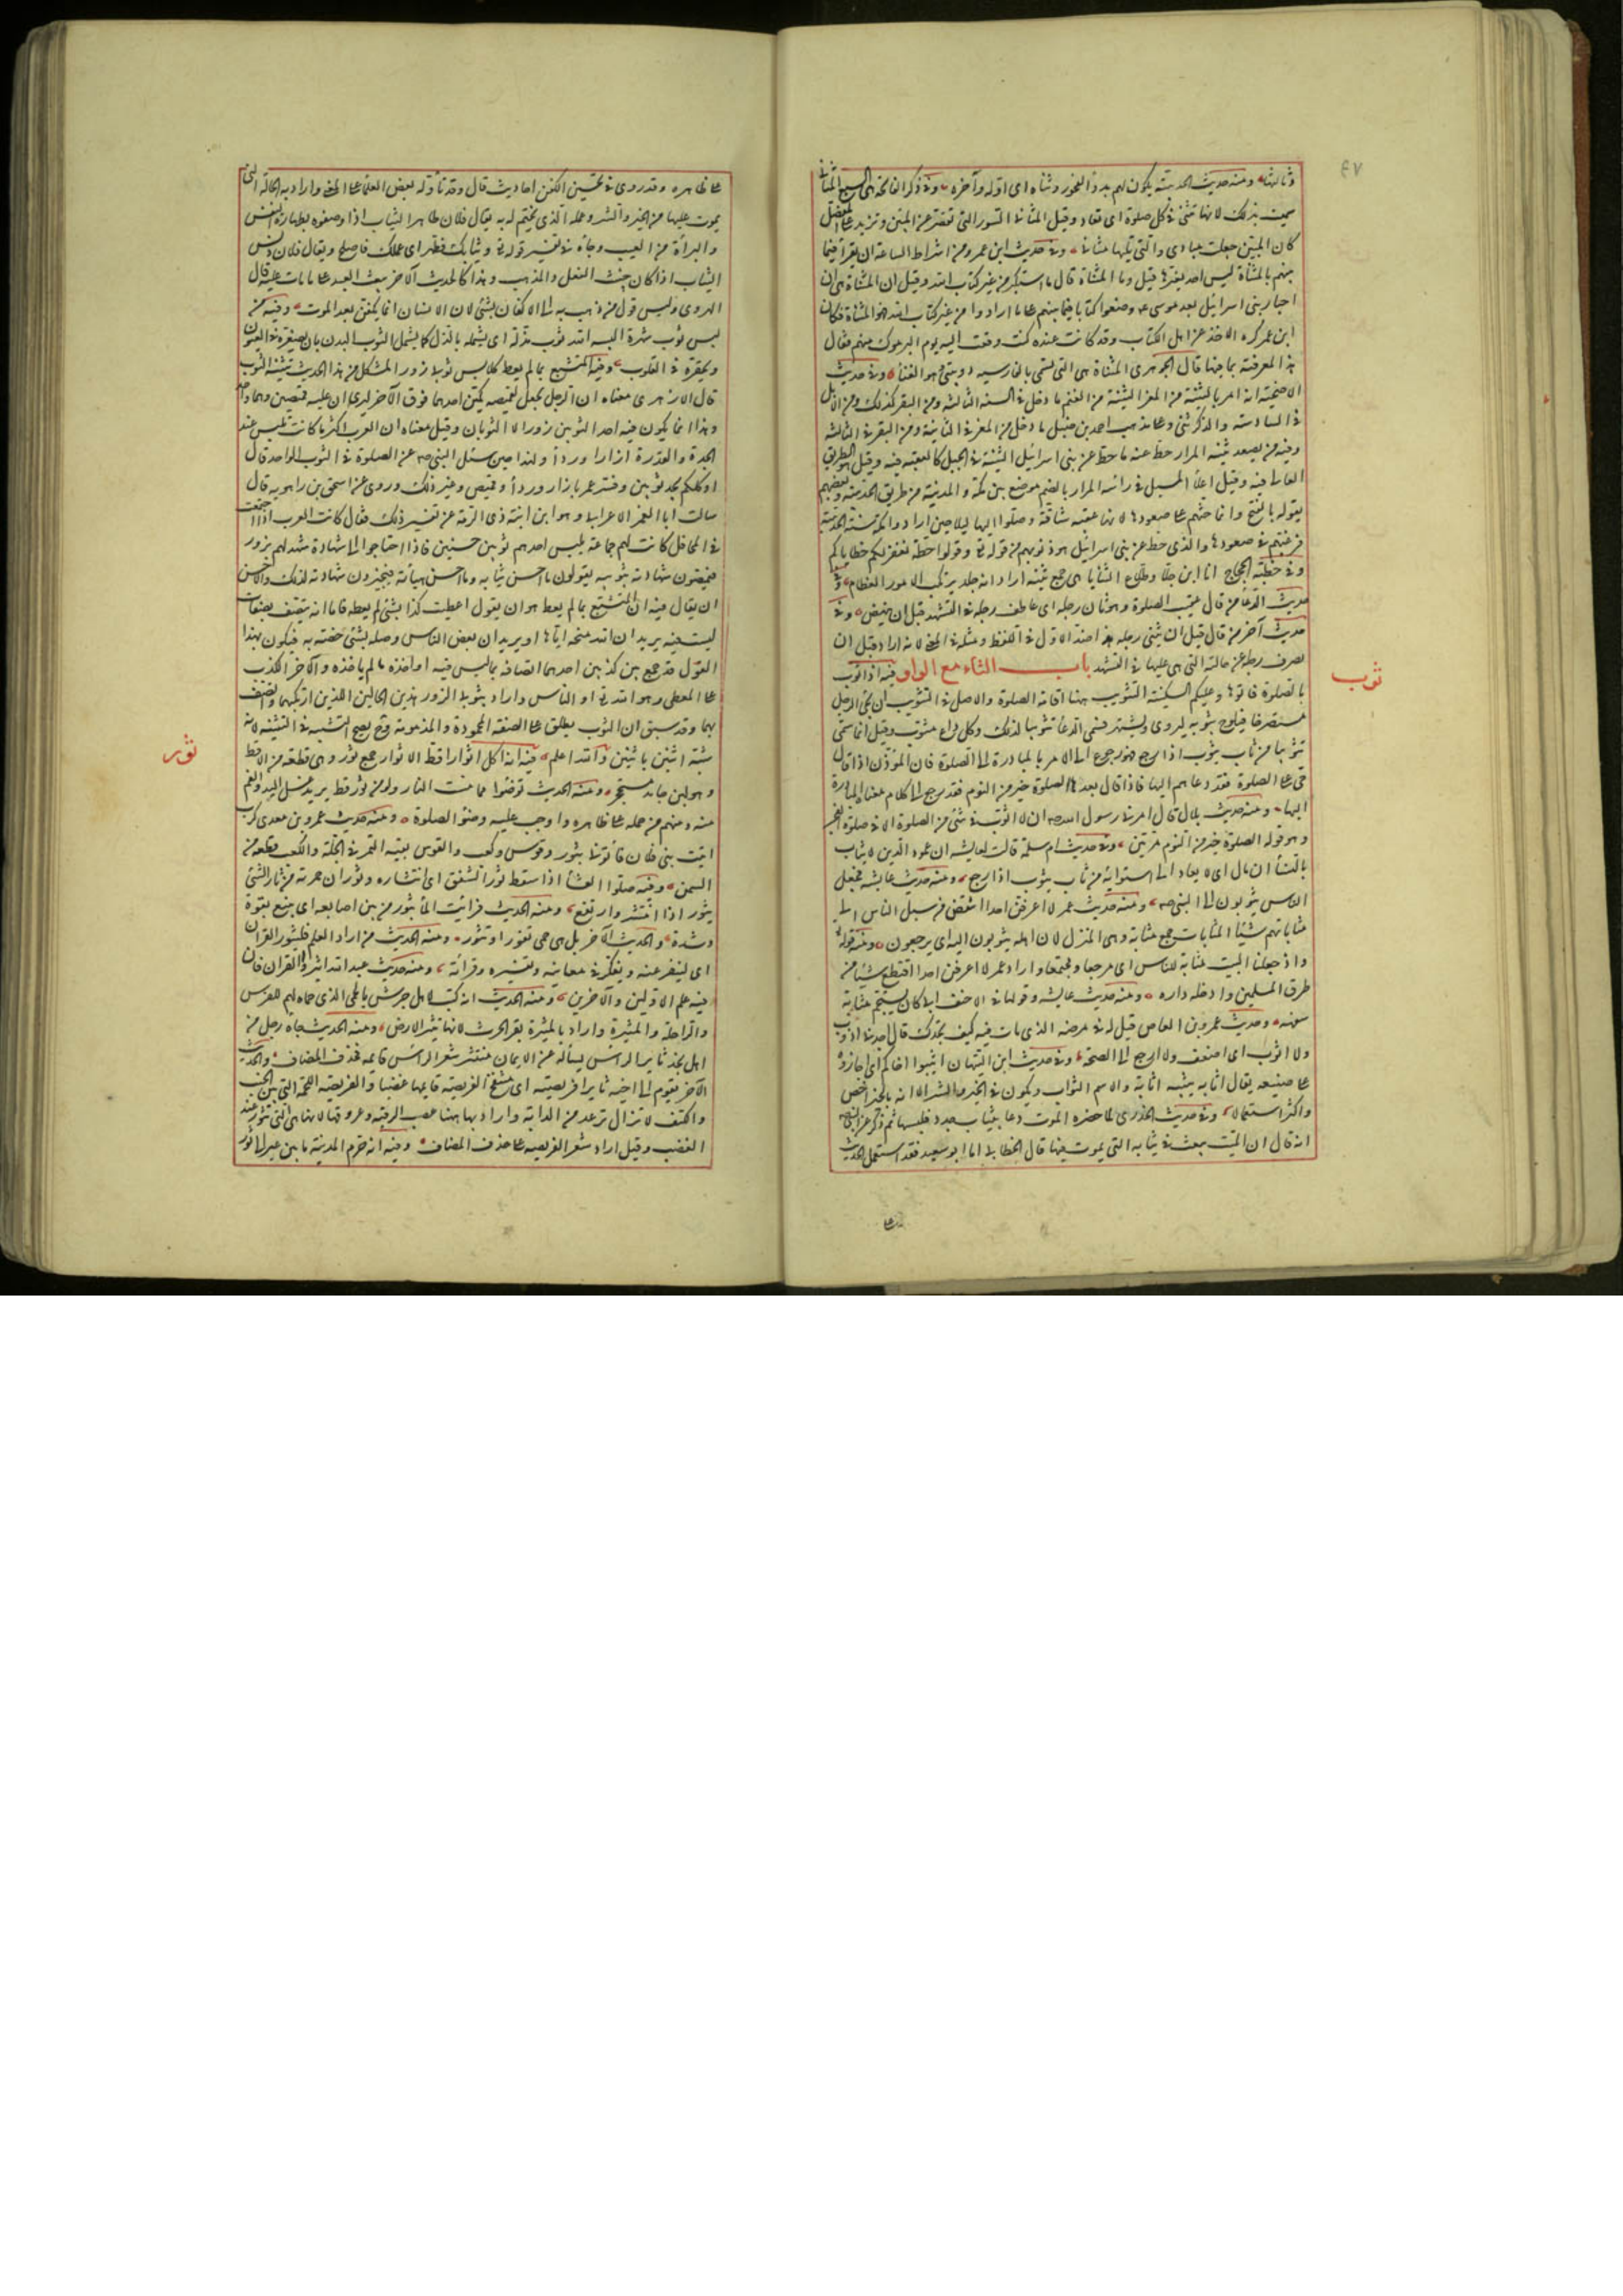 ٤٧
وثالثها ومنه حديث الحديبية يكون لهم بدؤ الفجور وثناه اى اوله وآخره وفى ذكر الفاتحة هى السبع المثانى
سميت بذلك لانها تثنى فى كل صلوة اى تعاد وقيل المثانى السور التى تقصر عن المئين وتزيد على المفصل
كان المئين جعلت مبادى والتى تليها مثانى وفى حديث ابن عمرو من اشراط الساعة ان يقرأ فيما
بينهم بالمثناة ليس احد يغيرها قيل وما المثناة قال ما استكتب من غير كتاب الله وقيل ان المثناة هى ان
احبار بنى اسرائيل بعد موسى عم وضعوا كتابا فيما بينهم على ما ارادوا من غير كتاب الله فهو المثناة فكان
ابن عمر كره الاخذ عن اهل الكتاب وقد كانت عنده كتب وقعت اليه يوم اليرموك منهم فقال
هذا لمعرفته بما فيها قال الجوهرى المثناة هى التى تسمى بالفارسية دوبيتى وهو الغناء وفى حديث
الاضحية انه امر بالثنية من المعز الثنية من الغنم ما دخل فى السنة الثالثة ومن البقر كذلك ومن الابل
فى السادسة والذكر ثنى وعلى مذهب احمد بن حنبل ما دخل من المعز فى الثانية ومن البقر فى الثالثة
وفيه من يصعد ثنية المرار حط عنه ما حط عن بنى اسرائيل الثنية فى الجبل كالعقبة فيه وقيل هو الطريق
العالى فيه وقيل اعلا المسيل فى رأسه المرار بالضم موضع بين مكة والمدينة من طريق الحديبية وبعضهم
يقوله بالفتح وانما حثهم على صعودها لانها عقبة شاقة وصلوا اليها ليلا حين ارادوا مكة سنة الحديبية
فرغبهم فى صعودها والذى حط عن بنى اسرائيل هو ذنوبهم من قوله تع وقولوا حطة نغفر لكم خطاياكم
وفى خطبة الحجاج انا ابن جلا وطلاع الثنايا هى جمع ثنية اراد انه جلد يرتكب الامور العظام وفى
حديث الدعاء من قال عقيب الصلوة وهو ثان رجله اى عاطف رجله فى التشهد قبل ان ينهض وفى
حديث آخر من قال قبل ان يثنى رجله هذا ضد الاول فى اللفظ ومثله فى المعنى لانه اراد قبل ان
يصرف رجله عن حالته التى هى عليها فى التشهد باب الثاء مع الواو فيه اذا ثوب
بالصلوة فاتوها وعليكم السكينة التثويب ههنا اقامة الصلوة والاصل فى التثويب ان يجئ الرجل
مستصرخا فيلوح بثوبه ليروى ويشتهر فسمى الدعاء تثويبا لذلك وكل داع مثوب وقيل انما سمى
تثويبا من ثاب يثوب اذا رجع فهو رجوع الى الامر بالمبادرة الى الصلوة فان المؤذن اذا قال
حى على الصلوة فقد دعاهم اليها فاذا قال بعدها الصلوة خير من النوم فقد رجع الى كلام معناه المبادرة
اليها ومنه حديث بلال قال امرنى رسول الله صم ان لا اثوب فى شئ من الصلوة الا فى صلوة الفجر
وهو قوله الصلوة خير من النوم مرتين وفى حديث ام سلمة قالت لعايشه ان عمود الدين لا يثاب
بالنساء ان مال اى لا يعاد الى استوائه من ثاب يثوب اذا رجع ومنه حديث عايشه فجعل
الناس يثوبون الى النبى صم ومنه حديث عمر لا اعرفن احدا انتقص من سبل الناس الى
مثاباتهم شيئا المثابات جمع مثابة وهى المنزل لان اهله يثوبون اليه اى يرجعون ومنه قوله تع
واذ جعلنا البيت مثابة للناس اى مرجعا ومجتمعا واراد عمر لا اعرفن احدا اقتطع شيئا من
طرق المسلمين وادخله داره ومنه حديث عايشه وقولها فى الاحنف الى كان يستجم مثابة
سفهه وحديث عمرو بن العاص قيل له فى مرضه الذى مات فيه كيف تجدك قال اجدنى اذوب
ولا اثوب اى اضعف ولا ارجع الى الصحة وفى حديث ابن التيهان اثيبوا اخاكم اى جازوه
على صنيعه يقال اثابه يثيبه اثابة والاسم الثواب ويكون فى الخير والشر الا انه بالخير اخص
واكثر استعمالا وفى حديث الخدرى لما حضره الموت دعا بثياب جدد فلبسها ثم ذكر عن النبى صم
انه قال ان الميت يبعث فى ثيابه التى يموت فيها قال الخطابى اما ابو سعيد فقد استعمل الحديث
ثوب
على
على ظاهره وقد روى فى تحسين الكفن احاديث قال وقد تأوله بعض العلماء على المعنى واراد به الحالة التى
يموت عليها من الخير والشر وعمله الذى يختم له به يقال فلان طاهر الثياب اذا وصفوه بطهارة النفس
والبرأة من العيب وجاء فى تفسير قوله تع وثيابك فطهر اى عملك فاصلح ويقال فلان دنس
الثياب اذا كان خبيث الفعل والمذهب وهذا كالحديث الآخر يبعث العبد على ما مات عليه قال
الهروى وليس قول من ذهب به الى الاكفان بشئ لان الانسان انما يكفن بعد الموت وفيه من
لبس ثوب شهرة البسه الله ثوب مذلة اى يشمله بالذل كما يشمل الثوب البدن بان يصغره فى العيون
ويحقره فى القلوب وفيه المتشبع بما لم يعط كلابس ثوبى زور المشكل من هذا الحديث تثنية الثوب
قال الازهرى معناه ان الرجل يجعل لقميصه كمين احدهما فوق الآخر ليرى ان عليه قميصين وهما واحد
وهذا انما يكون فيه احد الثوبين زورا لا الثوبان وقيل معناه ان العرب اكثر ما كانت تلبس عند
الجدة والقدرة ازارا ورداء ولهذا حين سئل النبى صم عن الصلوة فى الثوب الواحد قال
او كلكم يجد ثوبين وفسر عمر بازار ورداء وقميص وغير ذلك وروى عن اسحق بن راهويه قال
سالت ابا الغمر الاعرابى وهو ابن ابنة ذى الرمة عن تفسير ذلك فقال كانت العرب اذا اجتمعت
فى المحافل كانت لهم جماعة يلبس احدهم ثوبين حسنين فاذا احتاجوا الى شهادة شهد لهم بزور
فيمضون شهادته بثوبيه يقولون ما احسن ثيابه وما احسن هيأته فيجيزون شهادته لذلك والاحسن
ان يقال فيه ان المتشبع بما لم يعط هو ان يقول اعطيت كذا بشئ لم يعطه فاما انه يتصف بصفات
ليست فيه يريد ان الله منحه اياها او يريد ان بعض الناس وصله بشئ خصه به فيكون بهذا
القول قد جمع بين كذبين احدهما اتصافه بما ليس فيه او اخذه ما لم ياخذه والآخر الكذب
على المعطى وهو الله تع او الناس واراد بثوبى الزور هذين الحالين اللذين ارتكبهما واتصف
بهما وقد سبق ان الثوب يطلق على الصفة المحمودة والمذمومة وح يصح التشبيه فى التثنية لانه
شبه اثنين باثنين والله اعلم فيه انه اكل اثوار اقط الاثوار جمع ثور وهى قطعة من الاقط
وهو لبن جامد مستحجر ومنه الحديث توضئوا مما مست النار ولو من ثور اقط يريد غسل اليد والفم
منه ومنهم من حمله على ظاهره واوجب عليه وضوء الصلوة ومنه حديث عمرو بن معدى كرب
اتيت بنى فلان فاتونى بثور وقوس وكعب والقوس بقية التمر فى الجلة والكعب قطعة من
السمن وفيه صلوا العشاء اذا سقط ثور الشفق اى انتشاره وثوران حمرته من ثار الشئ
يثور اذا انتشر وارتفع ومنه الحديث فرايت الماء يثور من بين اصابعه اى ينبع بقوة
وشدة والحديث الآخر بل هى حمى تفور او تثور ومنه الحديث من اراد العلم فليثور القرآن
اى لينقر عنه ويفكر فى معانيه وتفسيره وقرائته ومنه حديث عبد الله اثيروا القران فان
فيه علم الاولين والآخرين ومنه الحديث انه كتب لاهل جرش بالحمى الذى حماه لهم للفرس
والراحلة والمثيرة واراد بالمثيرة بقر الحرث لانها تثير الارض ومنه الحديث جاءه رجل من
اهل نجد ثاير الراس يسأله عن الايمان منتشر شعر الرأس قايمه فحذف المضاف والحديث
الآخر يقوم الى اخيه ثايرا فريصته اى منتفخ الفريصة قايمها غضبا والفريصه اللحمة التى بين الجنب
والكتف لا تزال ترعد من الدابة واراد بها ههنا عصب الرقبه وعروقها لانها هى التى تثور عند
الغضب وقيل اراد شعر الفريصه على حذف المضاف وفيه انه حرم المدينة ما بين عير الى ثور
ثور